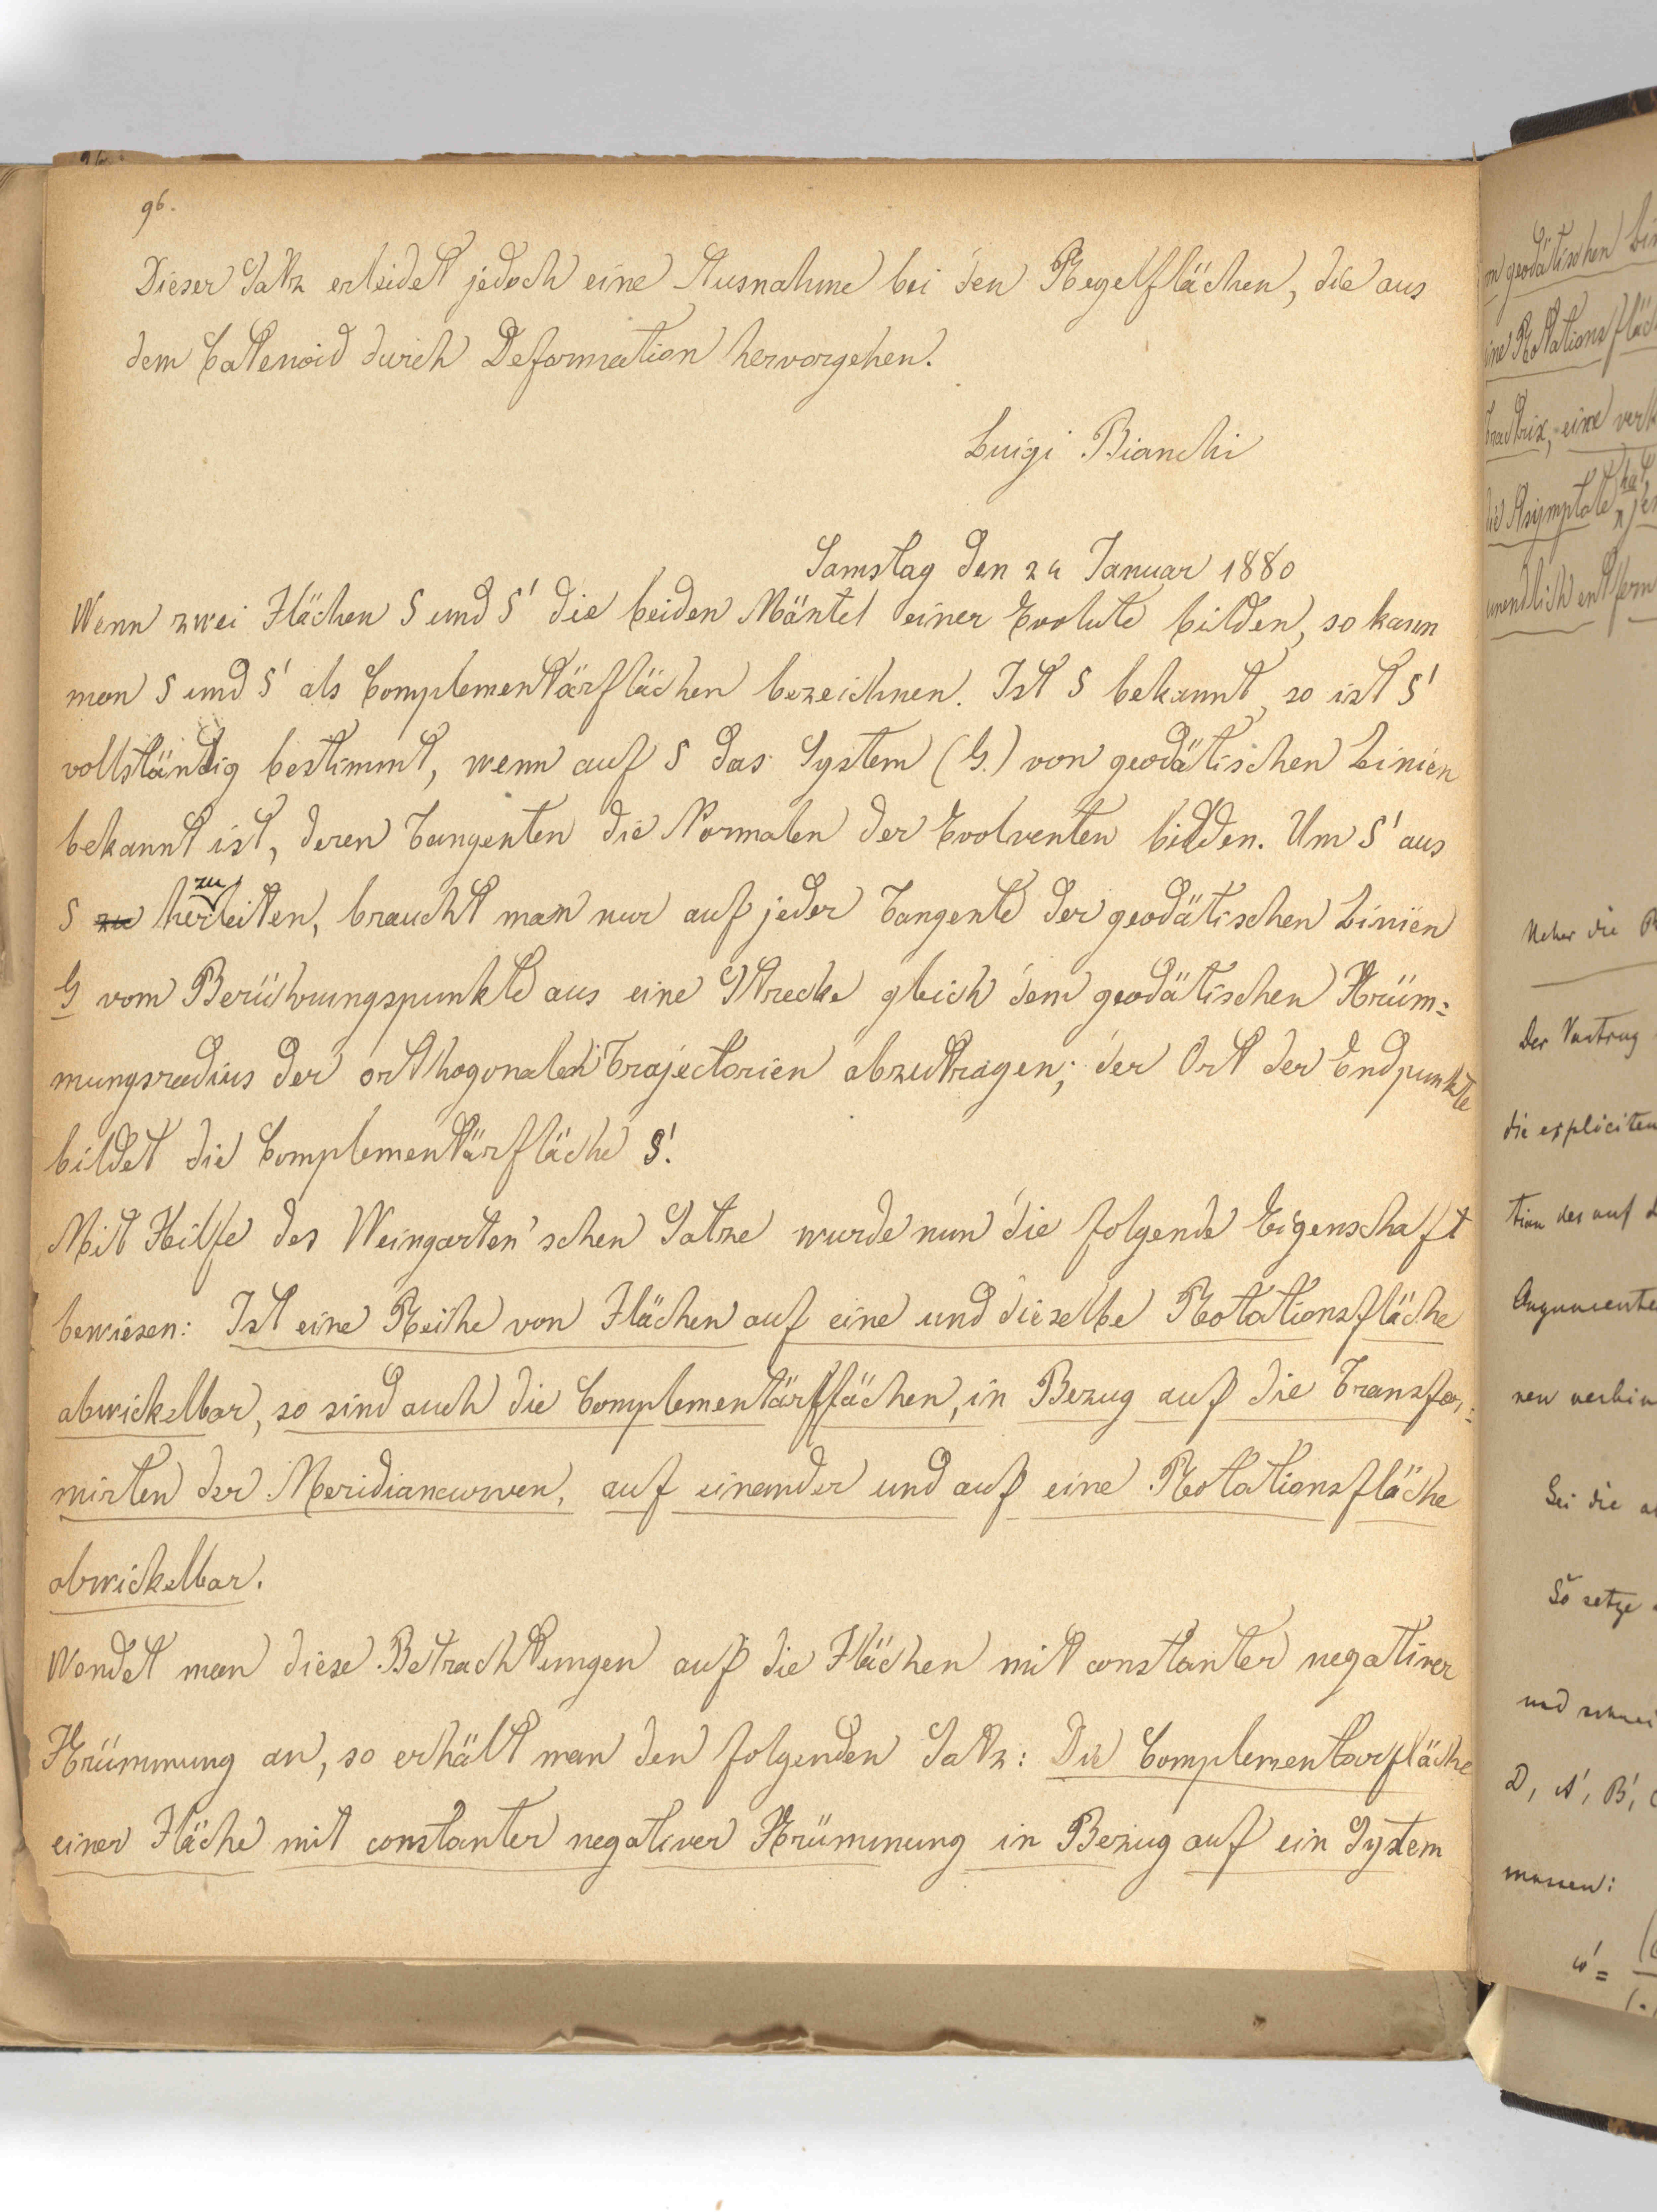 96.
Dieser Satz erleidet jedoch eine Ausnahme bei den Regelflächen, die aus
dem Catenoid durch Deformation hervorgehen.
Luigi Bianchi
Samstag den 24 Januar 1880
Wenn zwei Flächen S und S' die beiden Mäntel einer Evolute bilden, so kann
man S und S' als Complementärflächen bezeichnen. Ist S bekannt, so ist S'
vollständig bestimmt, wenn auf S das System (G.) von geodätischen Linien
bekannt ist, deren Tangenten die Normalen der Evolventen bilden. Um S' aus
S herzuleiten, braucht man nur auf jeder Tangente der geodätischen Linien
G vom Berührungspunkte aus eine Strecke gleich dem geodätischen Krüm=
mungsradius der orthogonalen Trajectorien abzutragen; der Ort der Endpunkte
bildet die Complementärfläche S'.
Mit Hilfe des Weingarten'schen Satze wurde nun die folgende Eigenschaft
bewiesen: Ist eine Reihe von Flächen auf eine und dieselbe Rotationsfläche
abwickelbar, so sind auch die Complementärflächen, in Bezug auf die Transfor=
mirten der Meridiancurven, auf einander und auf eine Rotationsfläche
abwickelbar.
Wendet man diese Betrachtungen auf die Flächen mit constanter negativer
Krümmung an, so erhält man den folgenden Satz: Die Complementarfläche
einer Fläche mit constanter negativer Krümmung in Bezug auf ein System
geodätischen
eine Rotationsfläch
tractrix, eine verk
die Asymptote hat
unendlich entfern
Ueber die
Der Vortrag
die expliciten
tion der auf
Argumente
nen verbin
Sei die
So setze
und
D, A', B',
massen:
w' =